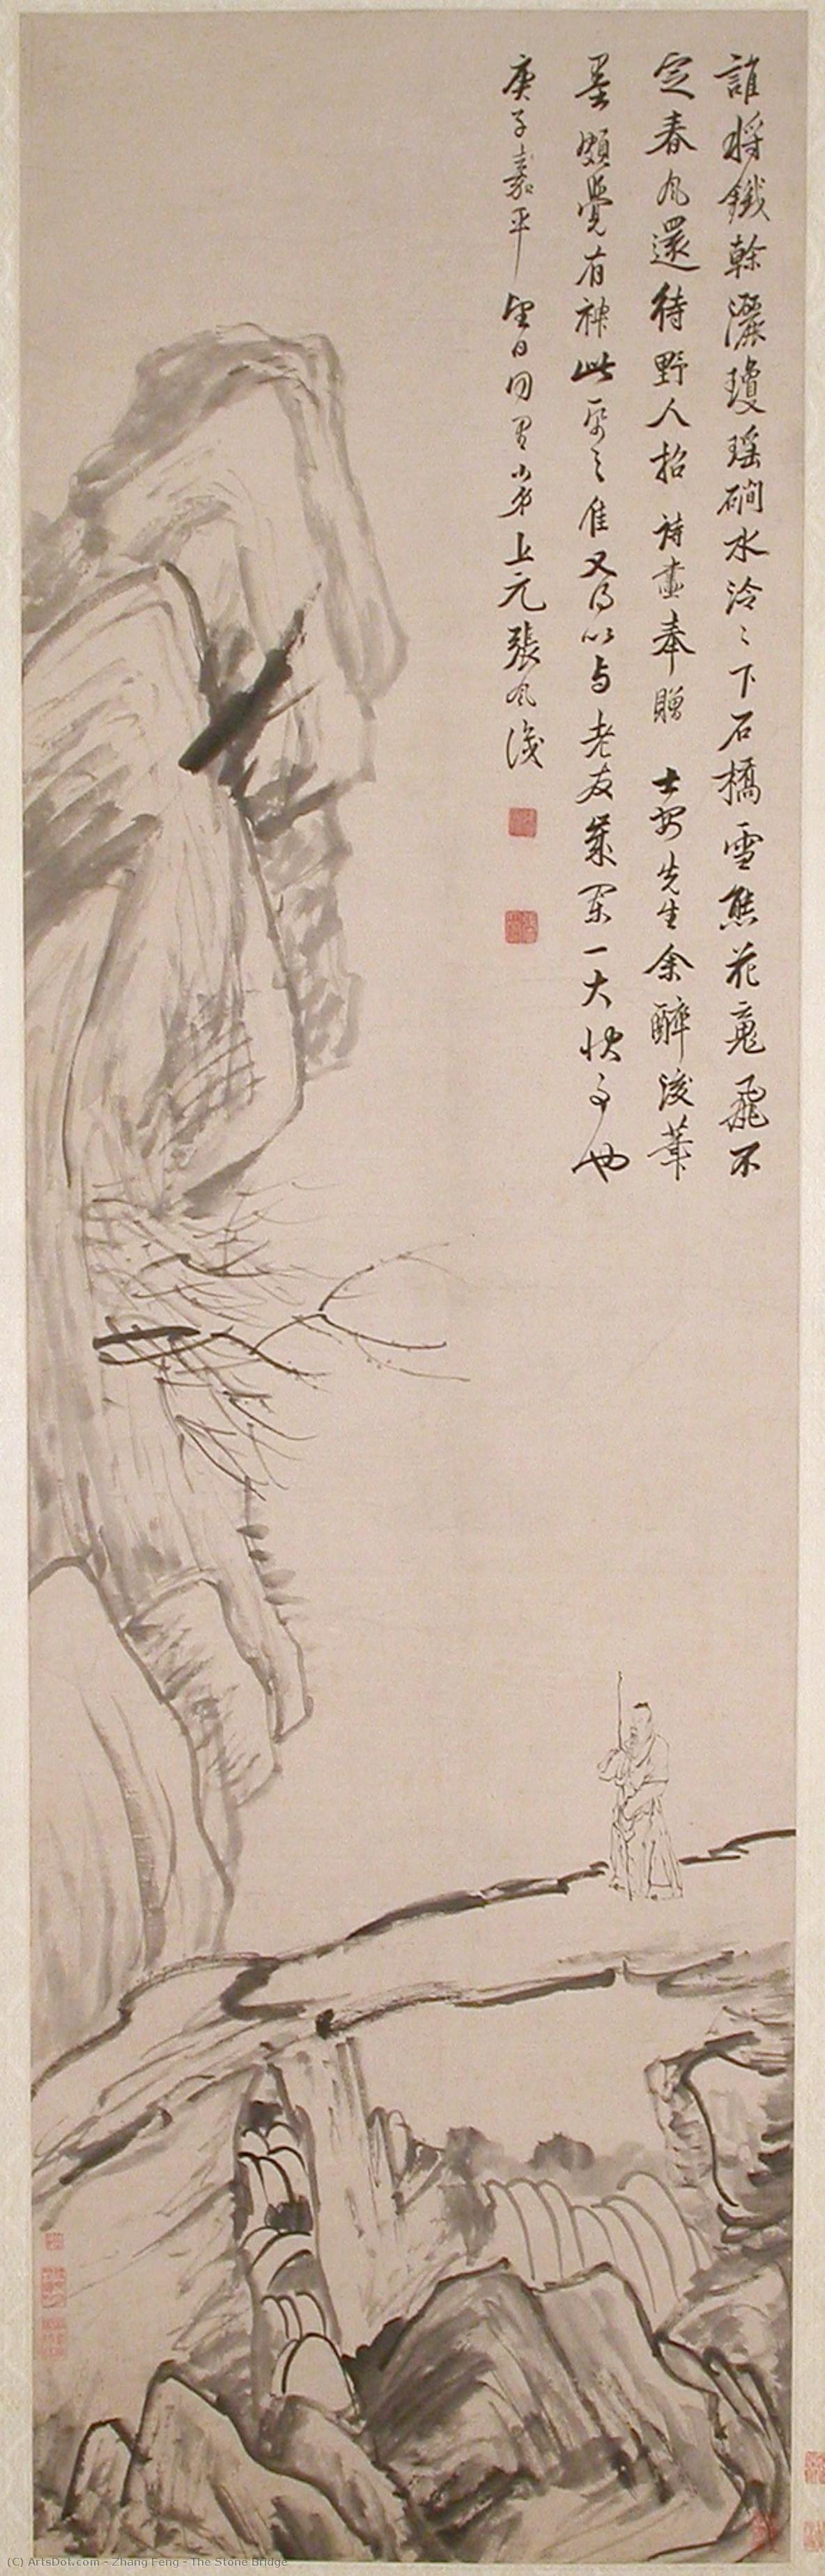 誰將鐵幹灑瓊瑤磵水泠〻下石橋雪態花魂飛不
定春風還待野人招 詩畫奉贈 士安先生余醉後筆
墨頗覺有神此 之 又得以与老友 一大快事也
庚子嘉平望日同里小弟上元張風識
(C) ArtsDot.com - Zhang Feng - The Stone Bridge